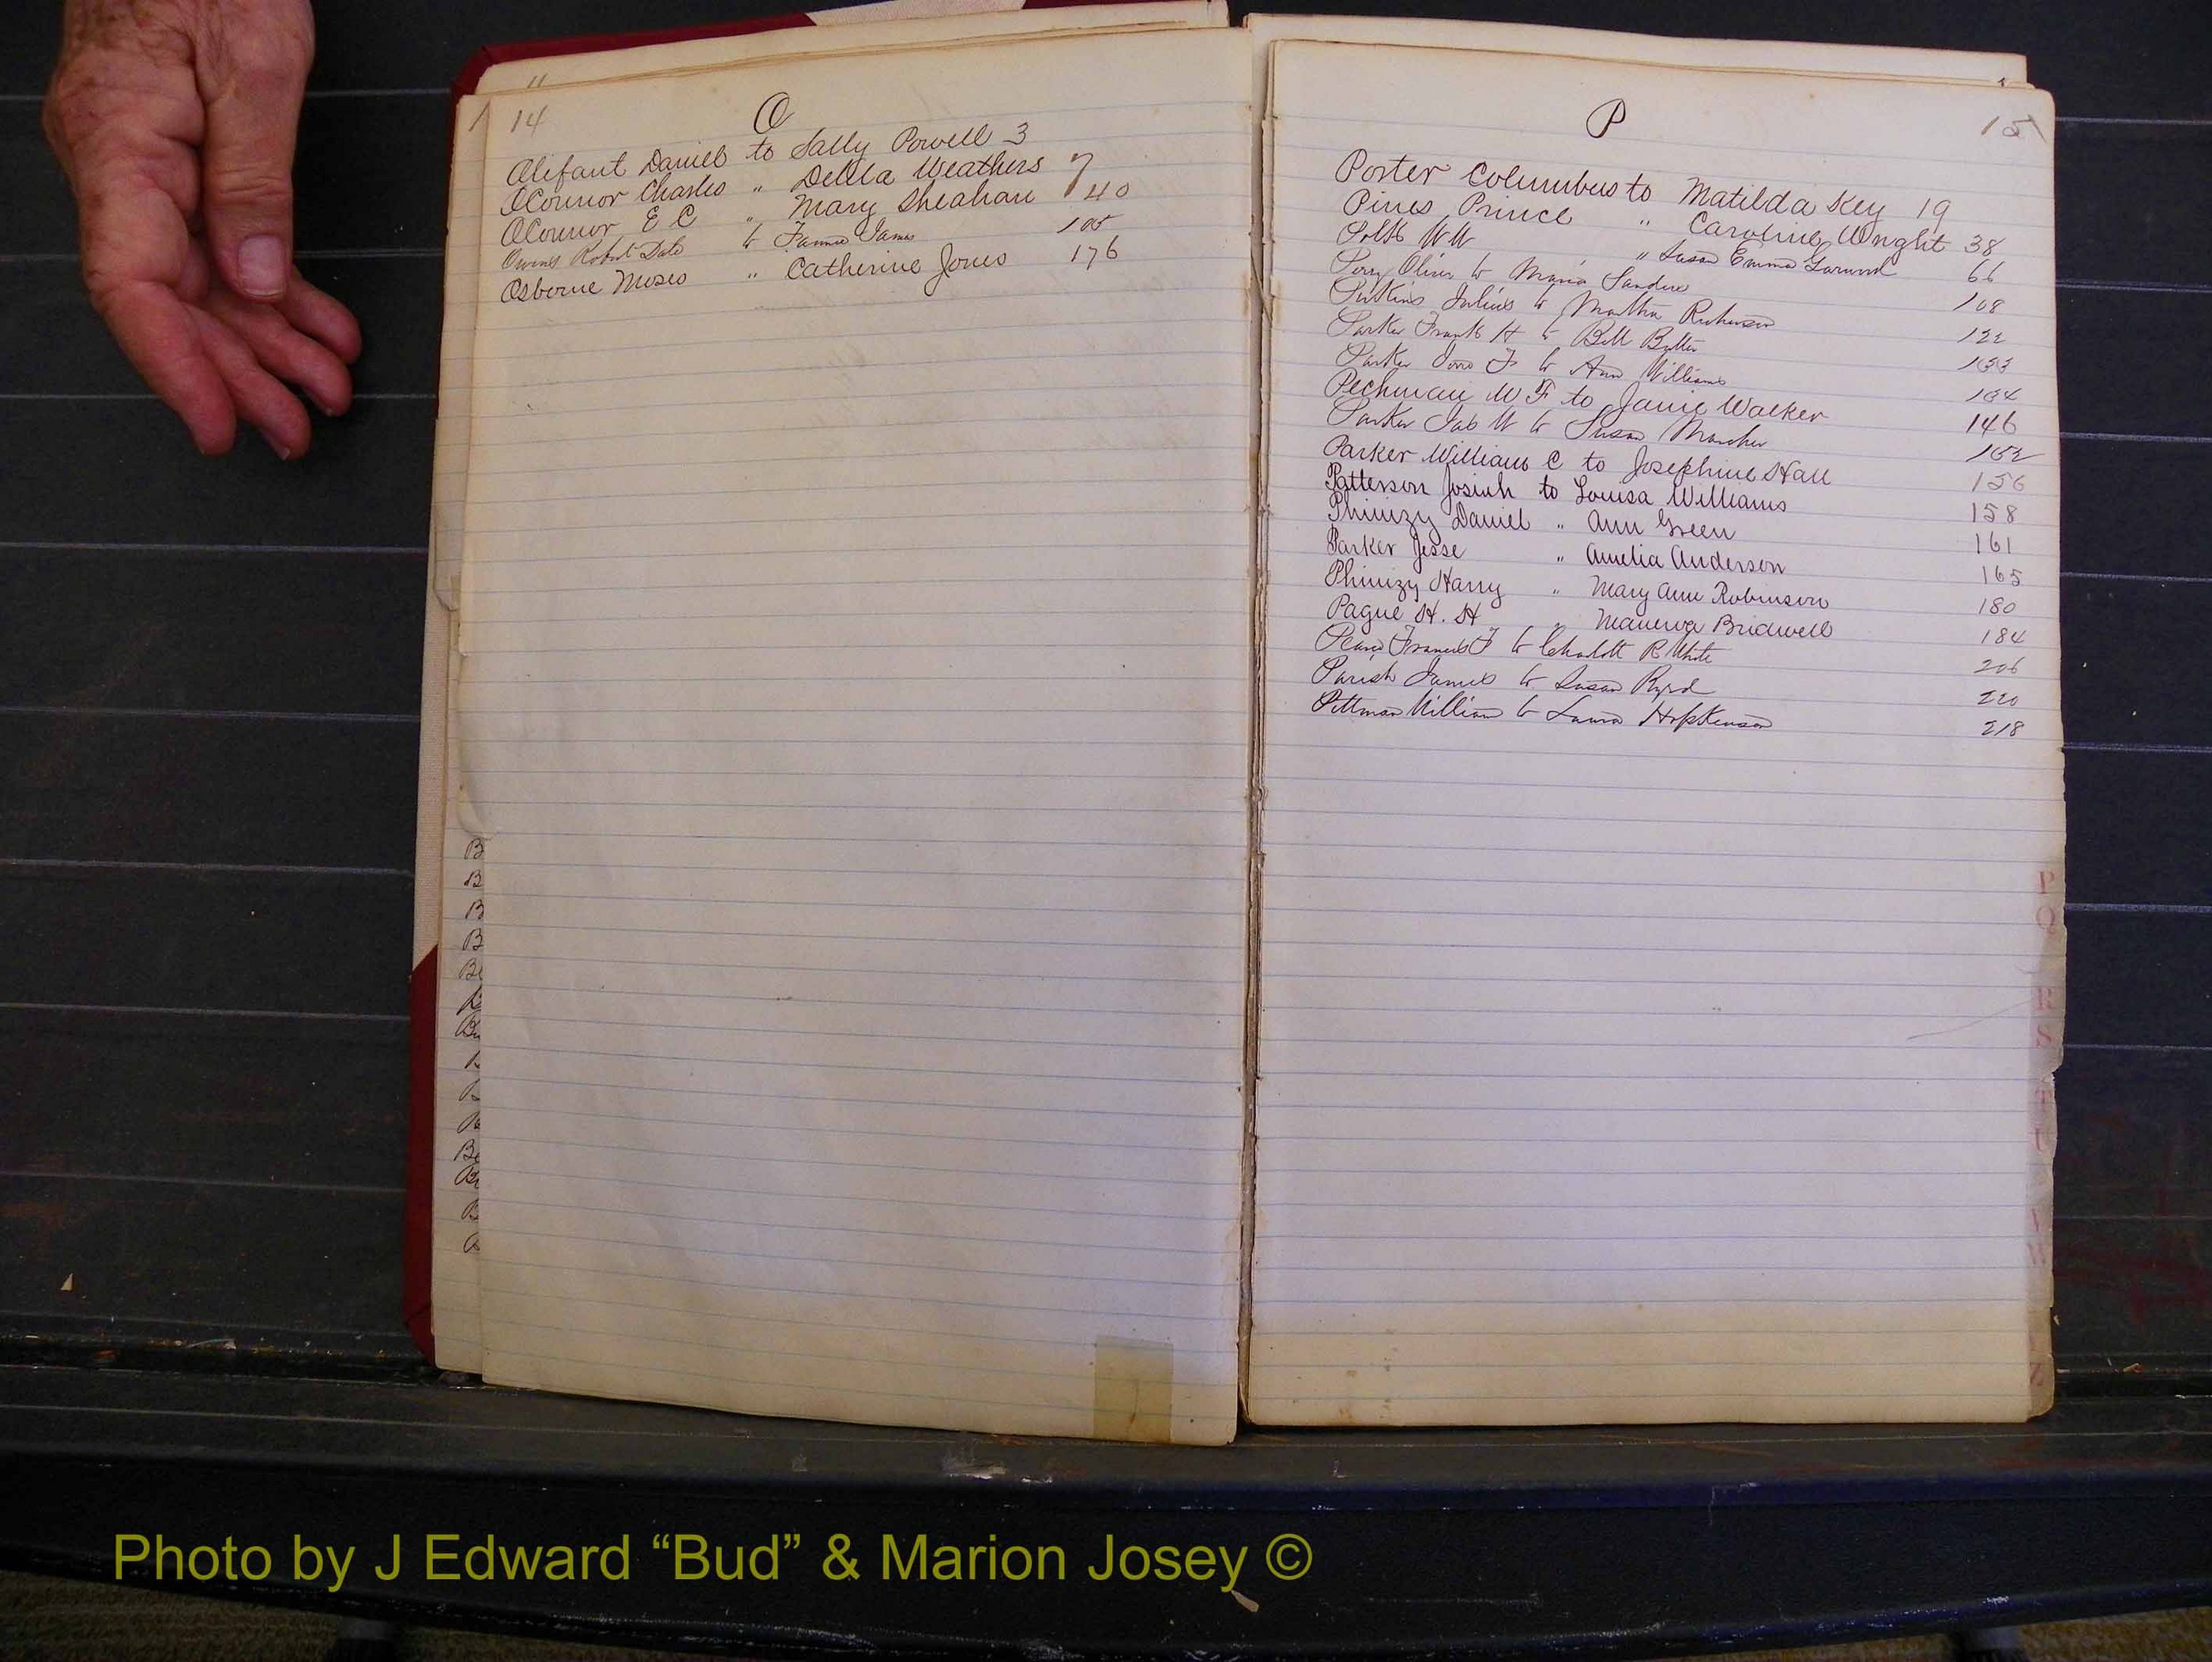 11
14
O
Olifant Daniel to Sally Powell 3
OConnor Charles " Della Weathers 7
OConnor E C " Mary Sheahan 40
Owens Robert Date to Fannie James 105
Osborne Moses " Catherine Jones 176
B
B
B
B
Be
Bu
B
B
Be
Be
B
P
15
Porter Columbus to Matilda Key 19
Pines Prince " Caroline Wright 38
Polk W W " Susan Emma Garwood 66
Perry Oliver to Maria Sanders 108
Perkins Julius to Martha 122
Parker Frank H to Bell Butler 133
Parker F to Ann Williams 134
Pechman W F to Janie Walker 146
Parker Jab W to Susan 152
Parker William C to Josephine Hall 156
Patterson Josiah to Louisa Williams 158
Phinizy Daniel " Ann Green 161
Parker Jesse " Amelia Anderson 165
Phinizy Harry " Mary Ann Robinson 180
Pague H. H " Manerva Bridwell 184
Francis F to Charlott R White 206
Parish James to Susan Byrd 220
Pittman William to Laura Hopkinson 218
P
Q
R
S
T
U
V
W
Z
Photo by J Edward “Bud” & Marion Josey ©